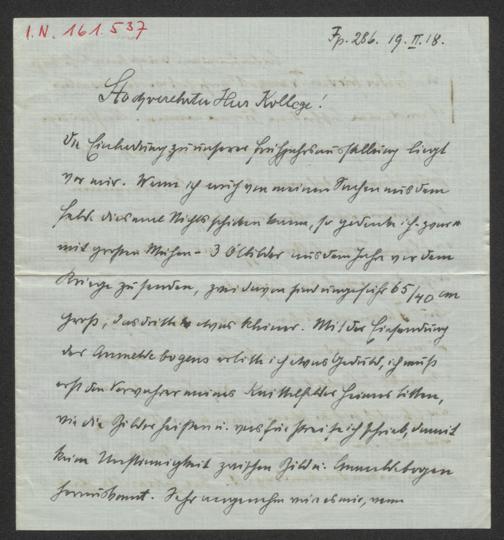 I.N. 161.537
Fp. 286. 19.II.18.
Hochverehrter Herr Kollege!
Die Einladung zu unserer Frühjahrsausstellung liegt
vor mir. Wenn ich auch von meinen Sachen aus dem
Felde diesmal Nichts schicken kann, so gedenke ich - zwar
mit großen Mühen - 3 Ölbilder aus dem Jahr vor dem
Kriege zu senden, zwei davon sind ungefähr 65/40 cm
groß, das dritte etwas kleiner. Mit der Einsendung
der Anmeldebogens erbitte ich etwas Geduld, ich muß
erst den Verwahrer meines Knittelfelder Heimes bitten,
wie die Bilder heißen u. was für Preise ich schrieb, damit
keine Unstimmigkeit zwischen Bild u. Anmeldebogen
herauskommt. Sehr angenehm wäre es mir, wenn